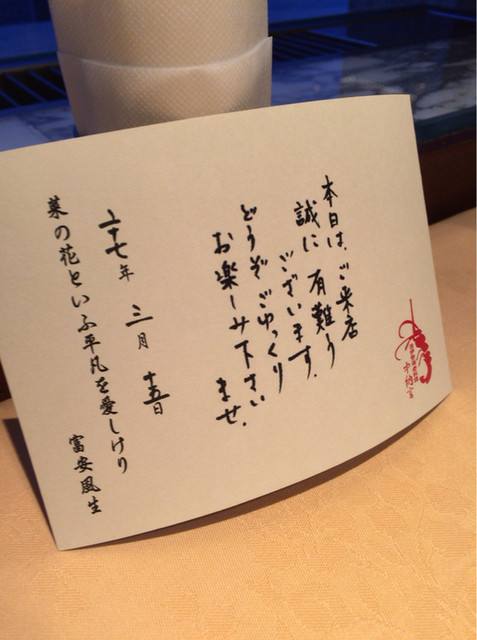 本日は、ご来店
誠に有難う
ございます。
どうぞごゆっくり
お楽しみ下さい
ませ。
二十七年 三月 十五日
菜の花といふ平凡を愛しけり
富安風生